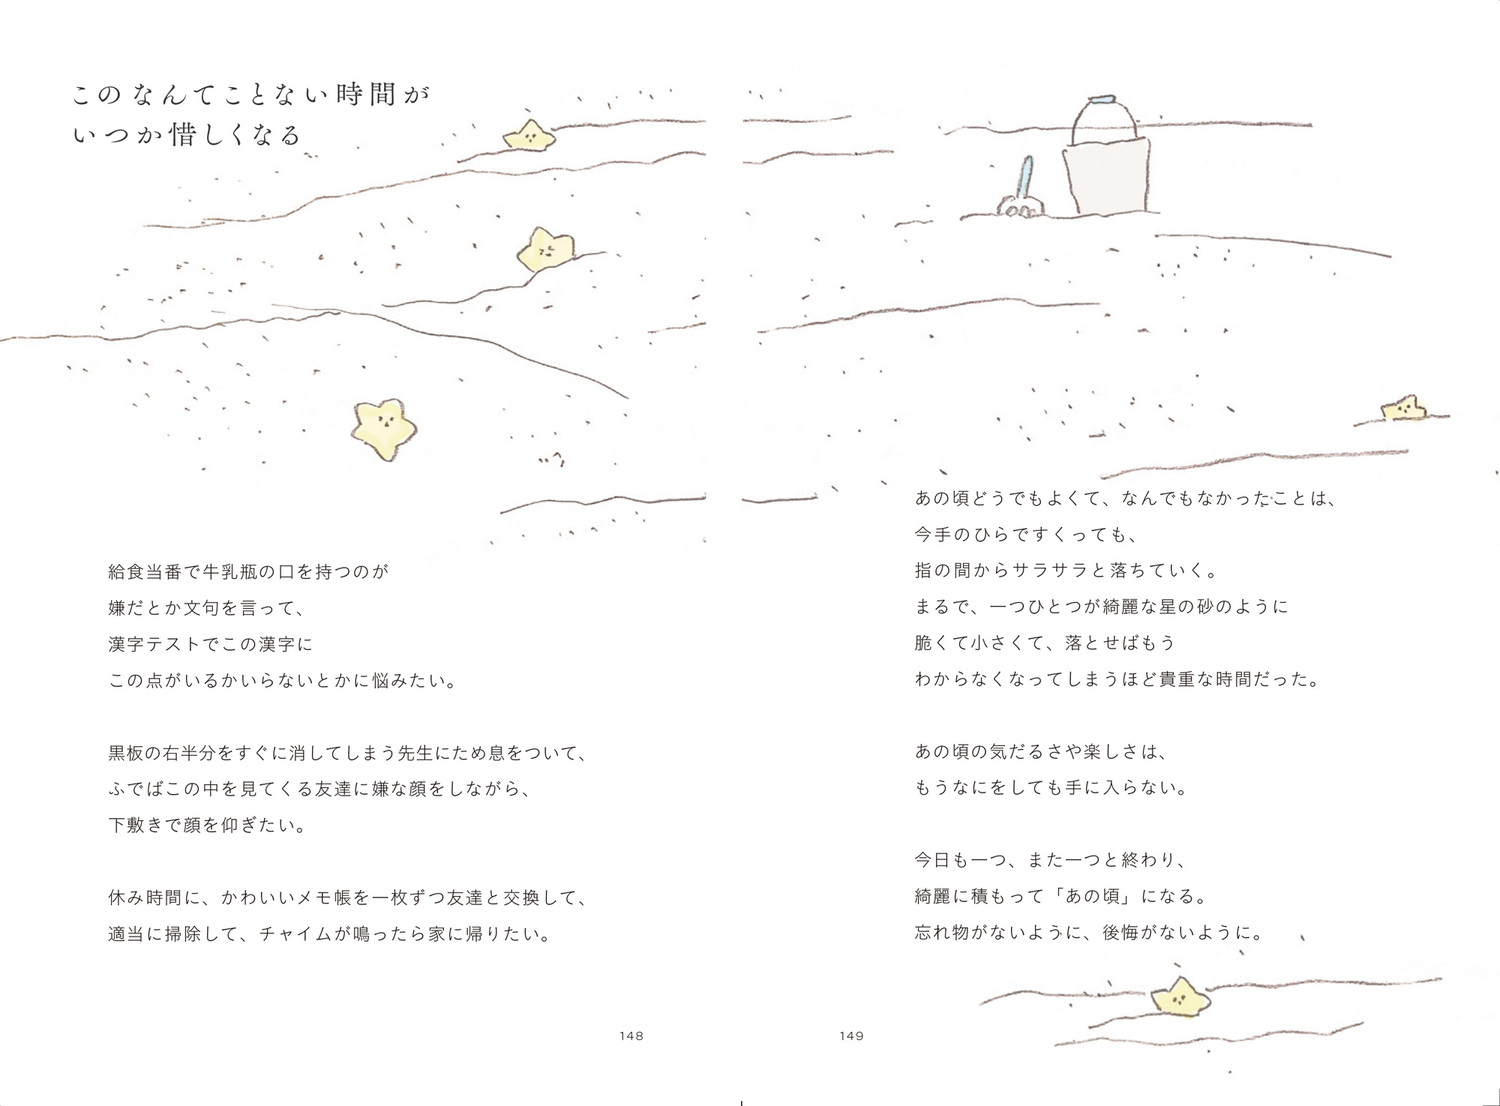 このなんてことない時間が
いつか惜しくなる
給食当番で牛乳瓶の口を持つのが
嫌だとか文句を言って、
漢字テストでこの漢字に
この点がいるかいらないとかに悩みたい。
黒板の右半分をすぐに消してしまう先生にため息をついて、
ふでばこの中を見てくる友達に嫌な顔をしながら、
下敷きで顔を仰ぎたい。
休み時間に、かわいいメモ帳を一枚ずつ友達と交換して、
適当に掃除して、チャイムが鳴ったら家に帰りたい。
148
あの頃どうでもよくて、なんでもなかったことは、
今手のひらですくっても、
指の間からサラサラと落ちていく。
まるで、一つひとつが綺麗な星の砂のように
脆くて小さくて、落とせばもう
わからなくなってしまうほど貴重な時間だった。
あの頃の気だるさや楽しさは、
もうなにをしても手に入らない。
今日も一つ、また一つと終わり、
綺麗に積もって「あの頃」になる。
忘れ物がないように、後悔がないように。
149